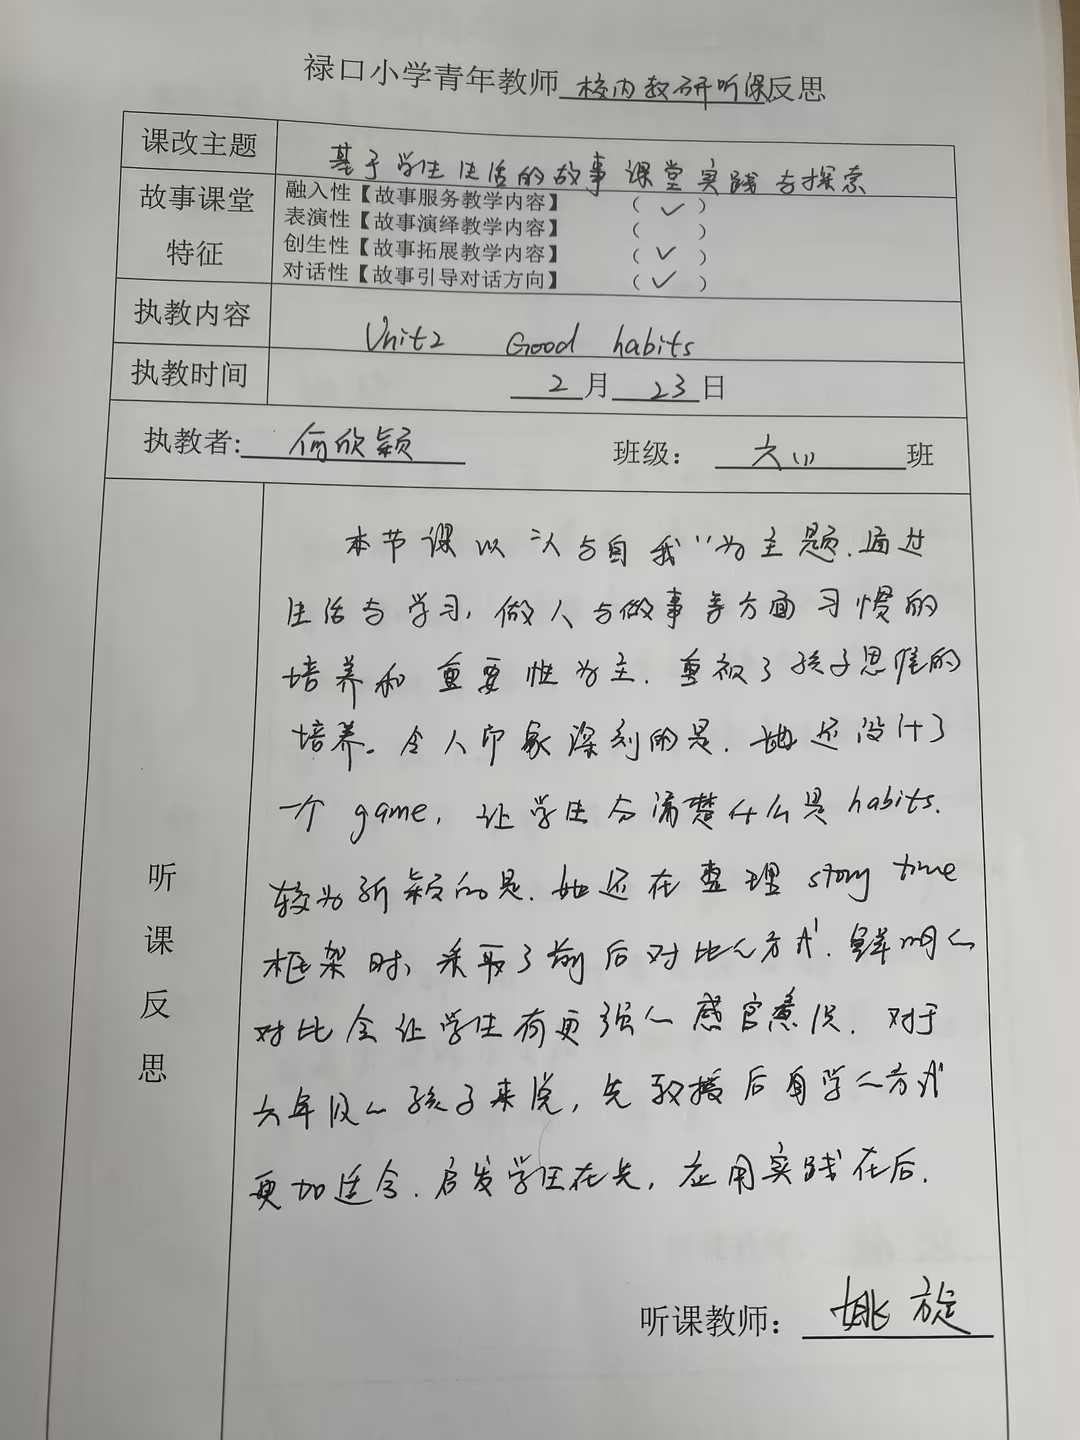 禄口小学青年教师校内教研听课反思
课改主题 基于学生生活的故事课堂实践与探索
故事课堂特征
融入性【故事服务教学内容】 （ ✓ ）
表演性【故事演绎教学内容】 （ ）
创生性【故事拓展教学内容】 （ ✓ ）
对话性【故事引导对话方向】 （ ✓ ）
执教内容 Unit2 Good habits
执教时间 2月23日
执教者: 何欣颖 班级： 六(1)班
听课反思
本节课以“人与自我”为主题，通过
生活与学习，做人与做事等方面习惯的
培养和重要性为主，重视了孩子思维的
培养。令人印象深刻的是，她还设计了
一个game，让学生分清楚什么是habits.
较为新颖的是，她还在整理story time
框架时，采取了前后对比的方式，鲜明的
对比会让学生有更强的感官意识，对于
六年级的孩子来说，先教授后自学的方式
更加适合，启发学生在先，应用实践在后.
听课教师： 姚旋